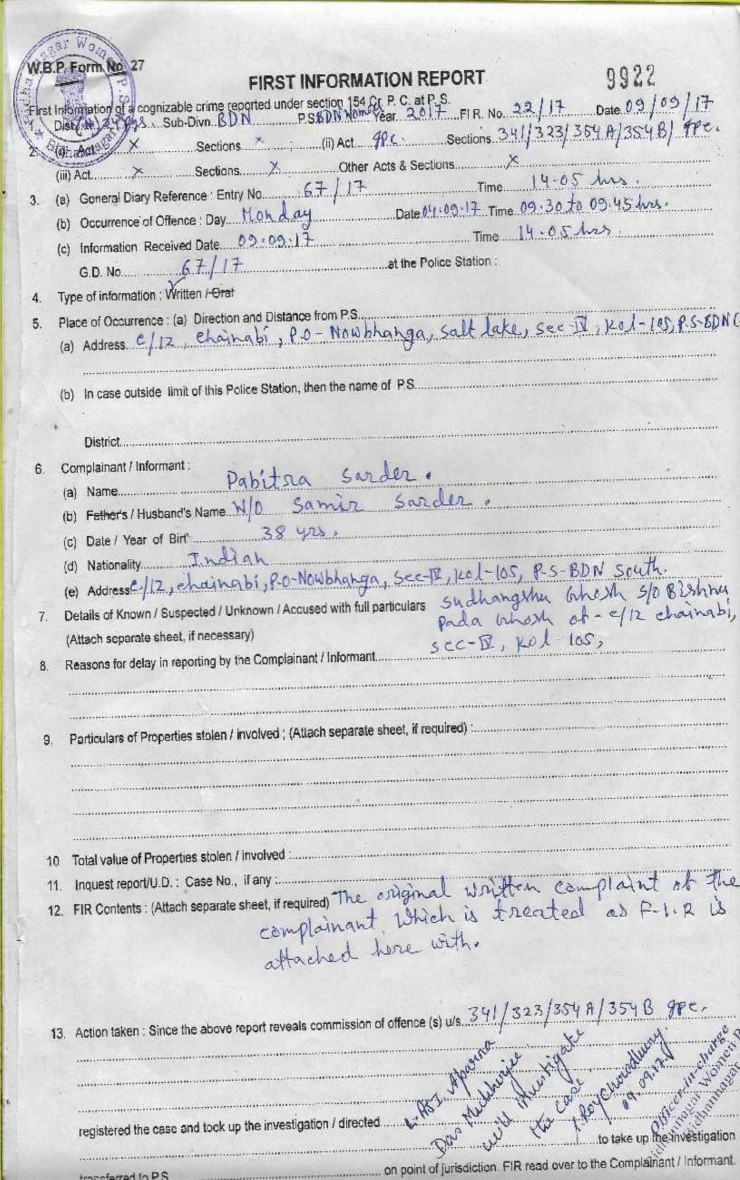 W.B.P. Form No. 27
9922
FIRST INFORMATION REPORT
First Information of a cognizable crime reported under section 154 Cr. P. C. at P. S.
Sub-Divn. BDN P.S BDN Women Year. 2017 FIR. No. 22/17 Date. 09/09/17
Act x Sections x (ii) Act IPC. Sections 341/323/354A/354B/ IPC.
(iii) Act x Sections x Other Acts & Sections x
3. (a) General Diary Reference : Entry No. 67/17 Time 14.05 hrs.
(b) Occurrence of Offence : Day Monday Date 04.09.17 Time 09.30 to 09.45 hrs.
(c) Information Received Date 09.09.17 Time 14.05 hrs
G.D. No. 67/17 at the Police Station :
4. Type of information : Written / Oral
5. Place of Occurrence : (a) Direction and Distance from P.S.
(a) Address. C/12, Chainabi, P.O- Nowbhanga, Salt lake, Sec-IV, Kol-105, P.S-BDN(
(b) In case outside limit of this Police Station, then the name of P.S.
District
6. Complainant / Informant :
(a) Name Pabitra Sarder.
(b) Father's / Husband's Name W/O Samir Sarder.
(c) Date / Year of Birt 38 yrs.
(d) Nationality Indian
(e) Address C/12, chainabi, P.O-Nowbhanga, Sec-IV, Kol-105, P-S-BDN South.
7. Details of Known / Suspected / Unknown / Accused with full particulars Sudhangshu Ghosh S/O Bishnu
(Attach separate sheet, if necessary) Pada Ghosh of - C/12 chainabi,
Sec-IV, Kol-105,
8. Reasons for delay in reporting by the Complainant / Informant
9. Particulars of Properties stolen / involved ; (Attach separate sheet, if required) :
10 Total value of Properties stolen / involved :
11. Inquest report/U.D. : Case No., if any :
12. FIR Contents : (Attach separate sheet, if required) The original written complaint of the
complainant, which is treated as F.I.R is
attached here with.
13. Action taken : Since the above report reveals commission of offence (s) u/s. 341/323/354A/354B IPC.
L.ASI Aparna
Das Mukherjee
will investigate
the case.
Roy Chowdhury
09.09.17
Officer-in-charge
Bidhannagar Women P
Bidhannagar
registered the case and took up the investigation / directed
to take up the investigation
transferred to P.S. on point of jurisdiction. FIR read over to the Complainant / Informant.